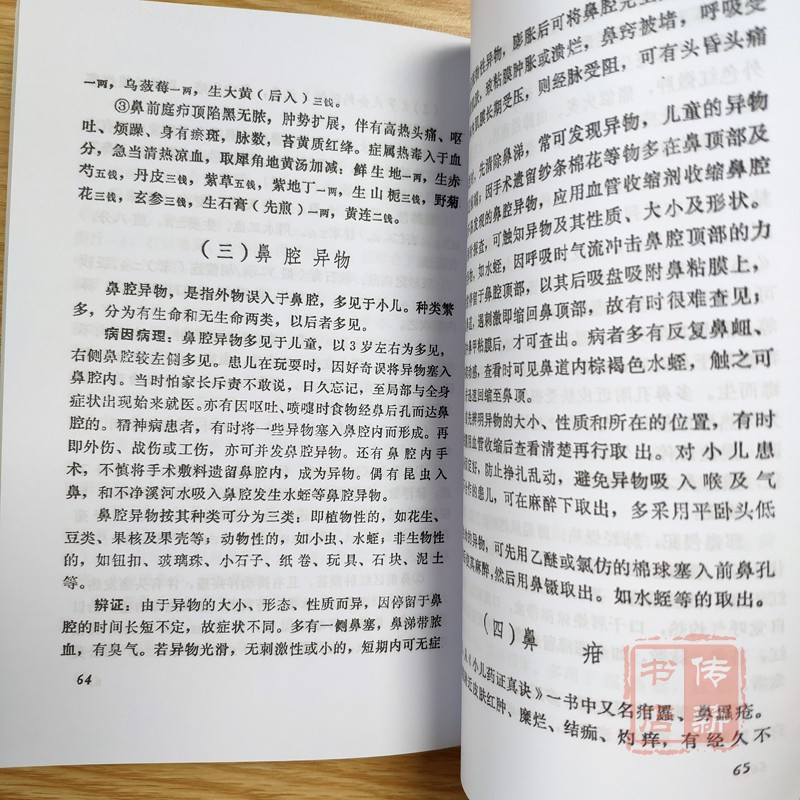 一两，乌蔹莓一两，生大黄（后入）三钱。
③鼻前庭疖顶陷黑无脓，肿势扩展，伴有高热头痛、呕
吐、烦躁、身有瘀斑，脉数，苔黄质红绛。症属热毒入于血
分，急当清热凉血，取犀角地黄汤加减：鲜生地一两，生赤
芍五钱，丹皮三钱，紫草五钱，紫地丁一两，生山栀三钱，野菊
花三钱，玄参三钱，生石膏（先煎）一两，黄连二钱。
（三）鼻腔异物
鼻腔异物，是指外物误入于鼻腔，多见于小儿。种类繁
多，分为有生命和无生命两类，以后者多见。
病因病理：鼻腔异物多见于儿童，以3岁左右为多见，
右侧鼻腔较左侧多见。患儿在玩耍时，因好奇误将异物塞入
鼻腔内。当时怕家长斥责不敢说，日久忘记，至局部与全身
症状出现始来就医。亦有因呕吐、喷嚏时食物经鼻后孔而达鼻
腔的。精神病患者，有时将一些异物塞入鼻腔内而形成。再
即外伤、战伤或工伤，亦可并发鼻腔异物。还有鼻腔内手
术，不慎将手术敷料遗留鼻腔内，成为异物。偶有昆虫入
鼻，和不净溪河水吸入鼻腔发生水蛭等鼻腔异物。
鼻腔异物按其种类可分为三类：即植物性的，如花生、
豆类、果核及果壳等；动物性的，如小虫、水蛭；非生物性
的，如钮扣、玻璃珠、小石子、纸卷、玩具、石块、泥土
等。
辨证：由于异物的大小、形态、性质而异，因停留于鼻
腔的时间长短不定，故症状不同。多有一侧鼻塞，鼻涕带脓
血，有臭气。若异物光滑，无刺激性或小的，短期内可无症
64
物性异物，膨胀后可将鼻腔完全
，致粘膜肿胀或溃烂，鼻窍被堵，呼吸受
肌膜长期受压，则经脉受阻，可有头昏头痛
，先清除鼻涕，常可发现异物，儿童的异物
；因手术遗留纱条棉花等物多在鼻顶部及
发现的鼻腔异物，应用血管收缩剂收缩鼻腔
态，可触知异物及其性质、大小及形状。
，如水蛭，因呼吸时气流冲击鼻腔顶部的力
留于鼻腔顶部，以其后吸盘吸附鼻粘膜上，
，遇刺激即缩回鼻顶部，故有时很难查见，
鼻甲粘膜后，才可查出。病者多有反复鼻衄、
感，查看时可见鼻道内棕褐色水蛭，触之可
迅速回缩至鼻顶。
先辨明异物的大小、性质和所在的位置，有时
血管收缩后查看清楚再行取出。对小儿患
定好，防止挣扎乱动，避免异物吸入喉及气
作的患儿，可在麻醉下取出，多采用平卧头低
的异物，可先用乙醚或氯仿的棉球塞入前鼻孔
其麻醉，然后用鼻镊取出。如水蛭等的取出。
（四）鼻疳
《小儿药证真诀》一书中又名疳䘌、鼻䘌疮。
近皮肤红肿、糜烂、结痂、灼痒，有经久不
65
传新
书店